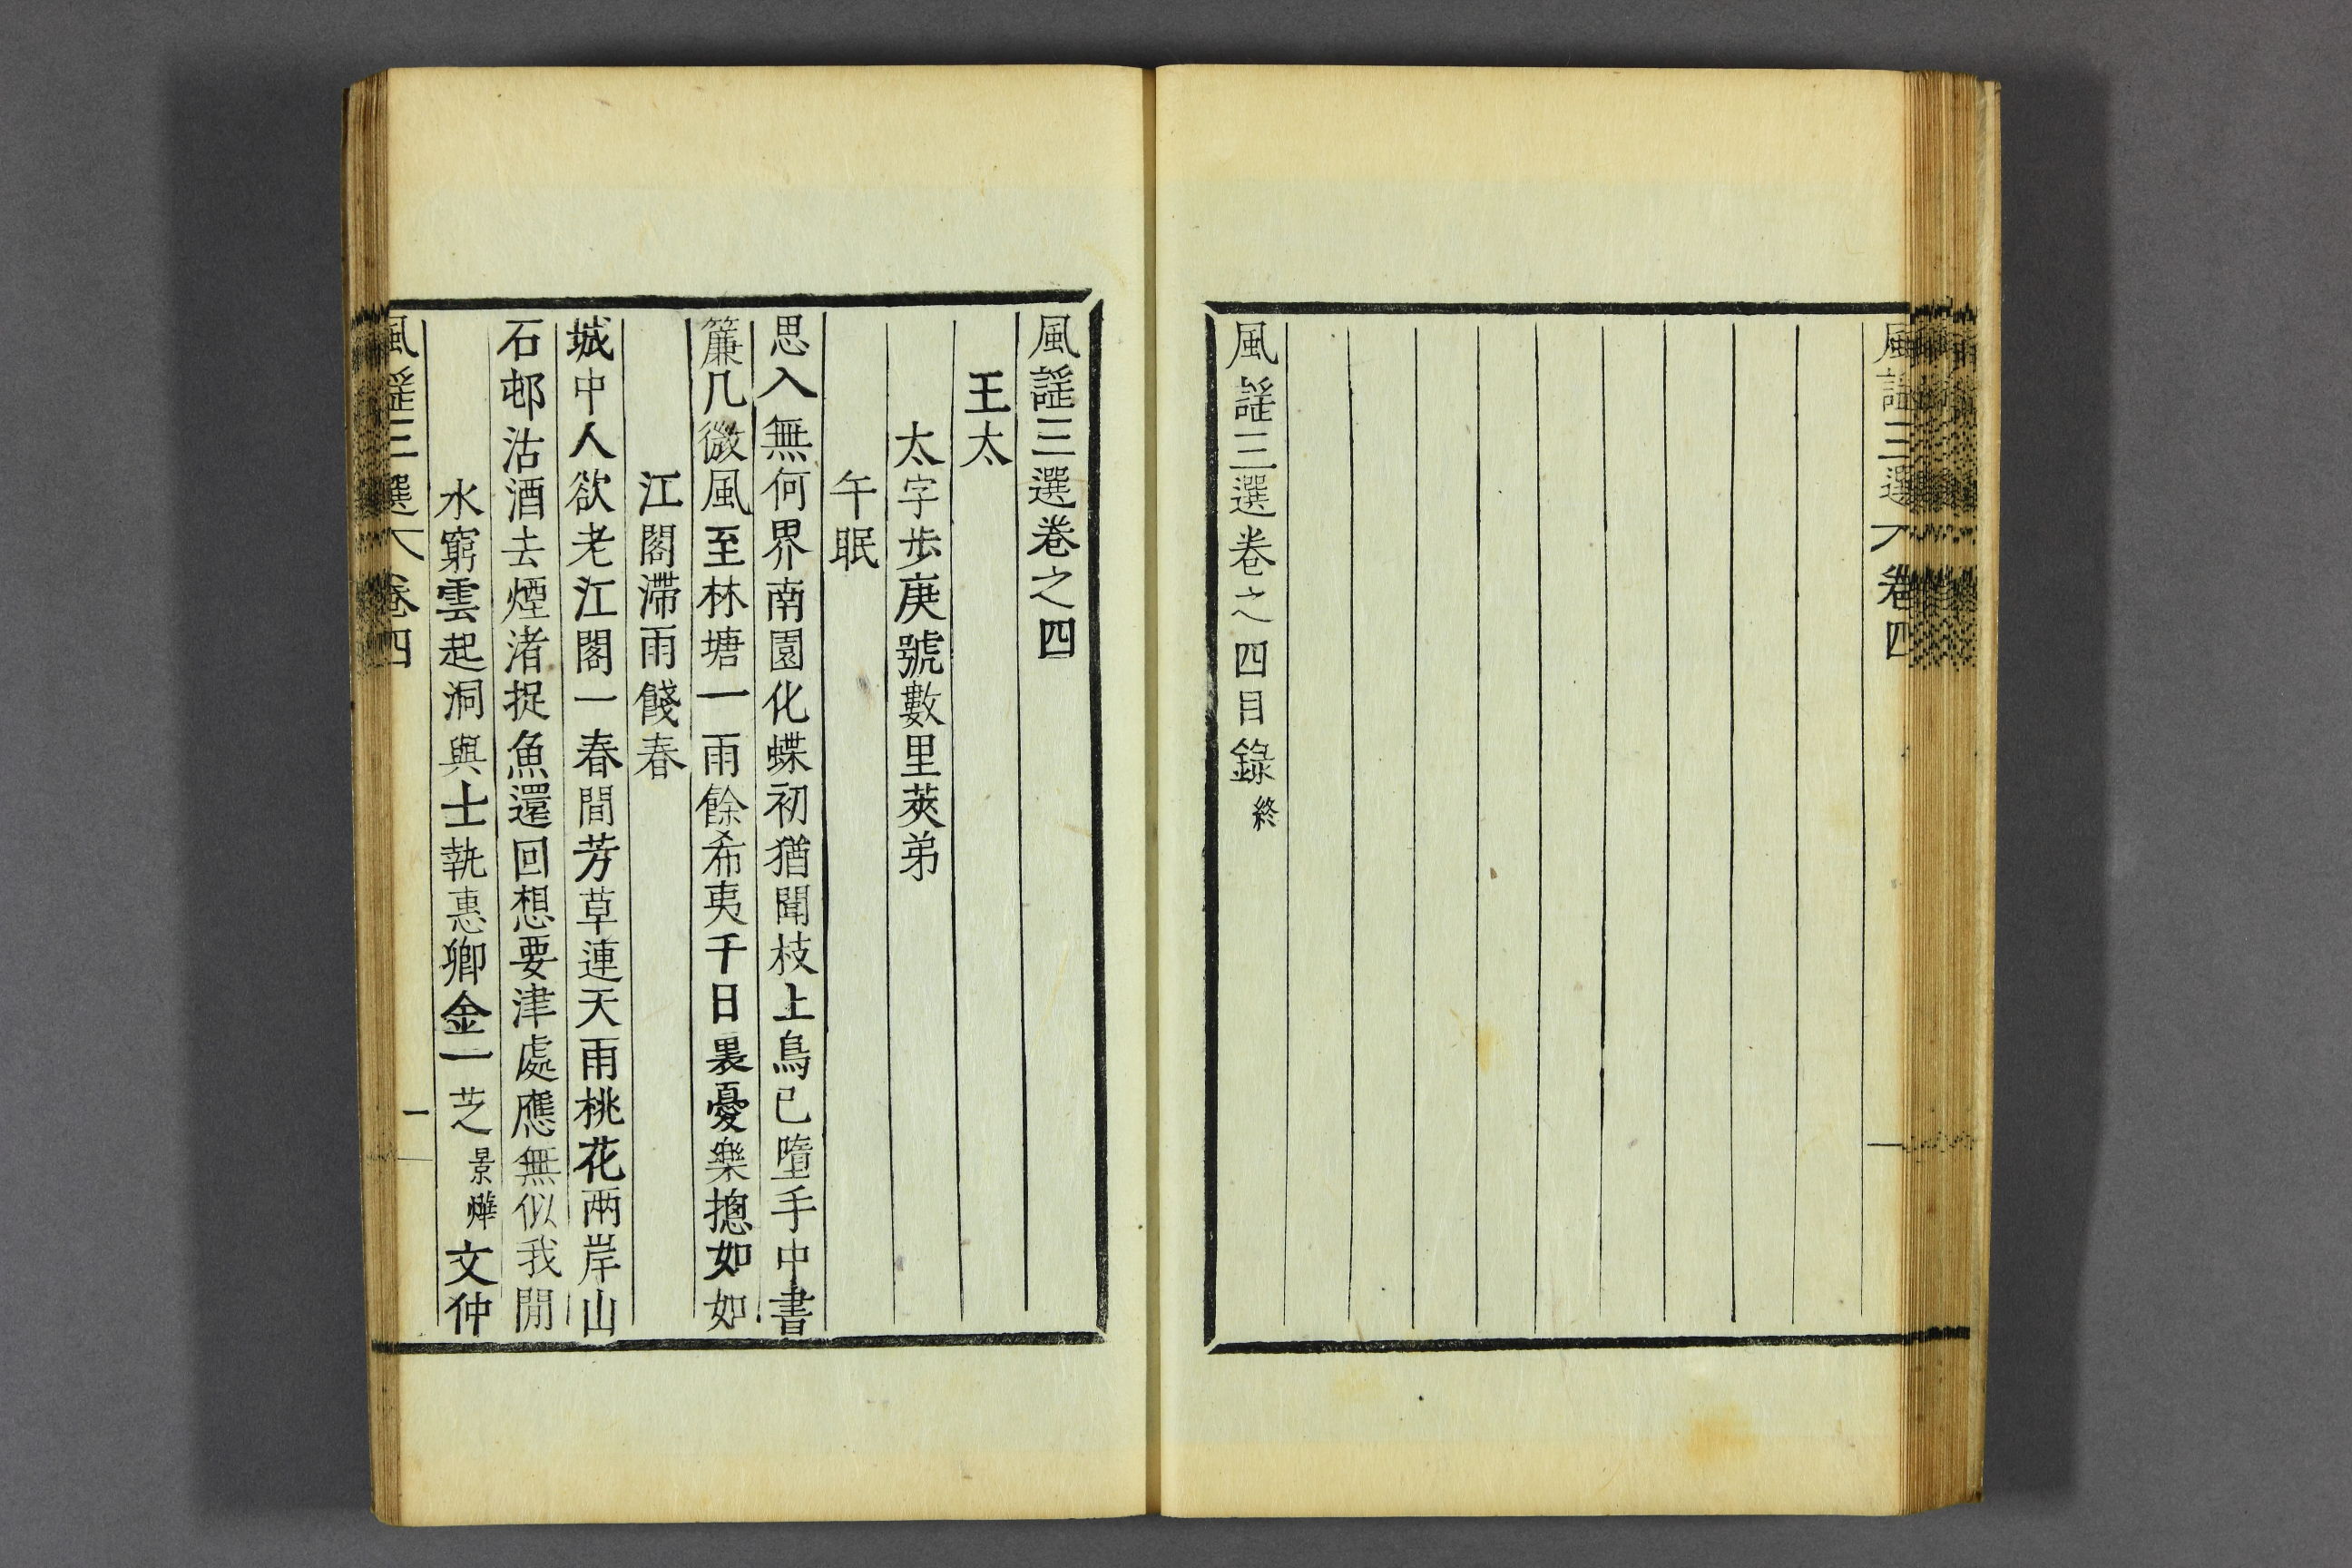 風謠三選 卷四
風謠三選卷之四目錄終
風謠三選卷之四
王太
太字步庚號數里莢弟
午眠
思入無何界南園化蝶初猶聞枝上鳥已墮手中書
簾几微風至林塘一雨餘希夷千日裏憂樂摠如如
江閣滯雨餞春
城中人欲老江閣一春間芳草連天雨桃花兩岸山
石邨沽酒去煙渚捉魚還回想要津處應無似我閒
水窮雲起洞與士執惠卿金一芝景爗文仲
風謠三選 卷四 一